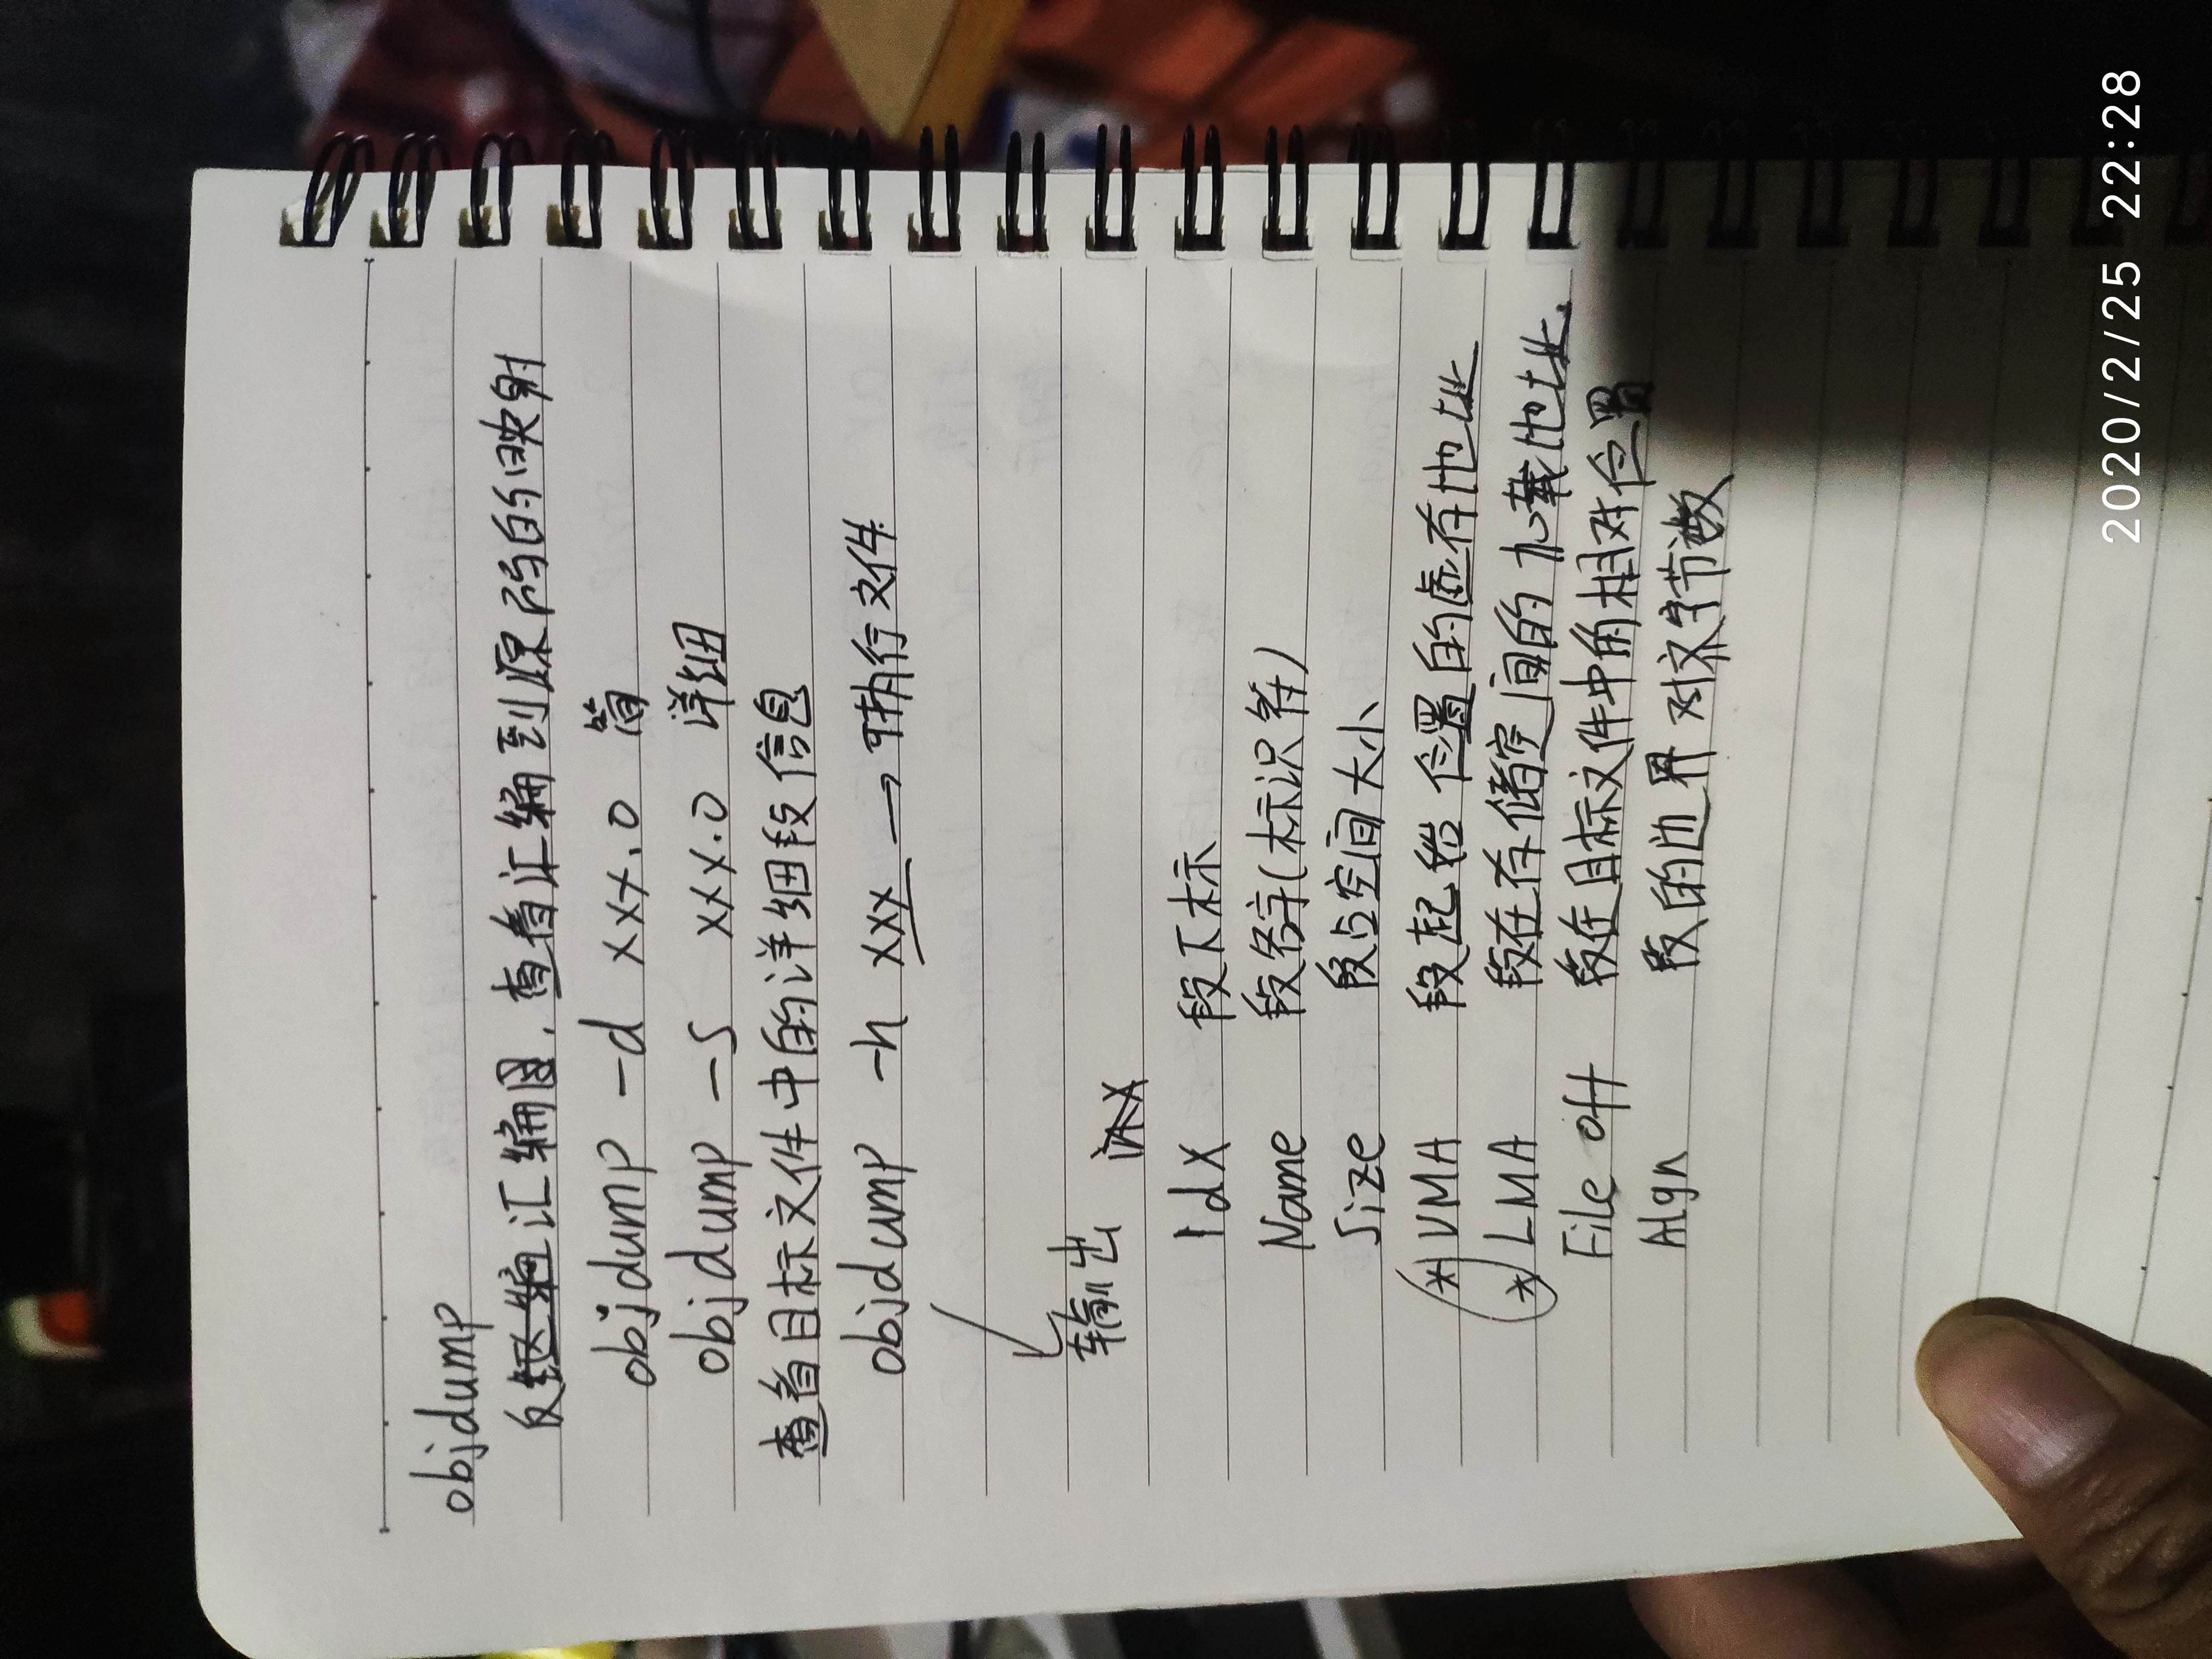 objdump
反汇编图，查看汇编到源码的映射
objdump -d xxx.o 简
objdump -S xxx.o 详细
查看目标文件中的详细段信息
objdump -h xxx → 可执行文件
输出
Idx 段下标
Name 段名字(标识符)
Size 段占空间大小
* VMA 段起始位置的虚存地址
* LMA 段在存储空间的加载地址.
File off 段在目标文件中的相对位置
Algn 段的边界对齐字节数
2020/2/25 22:28